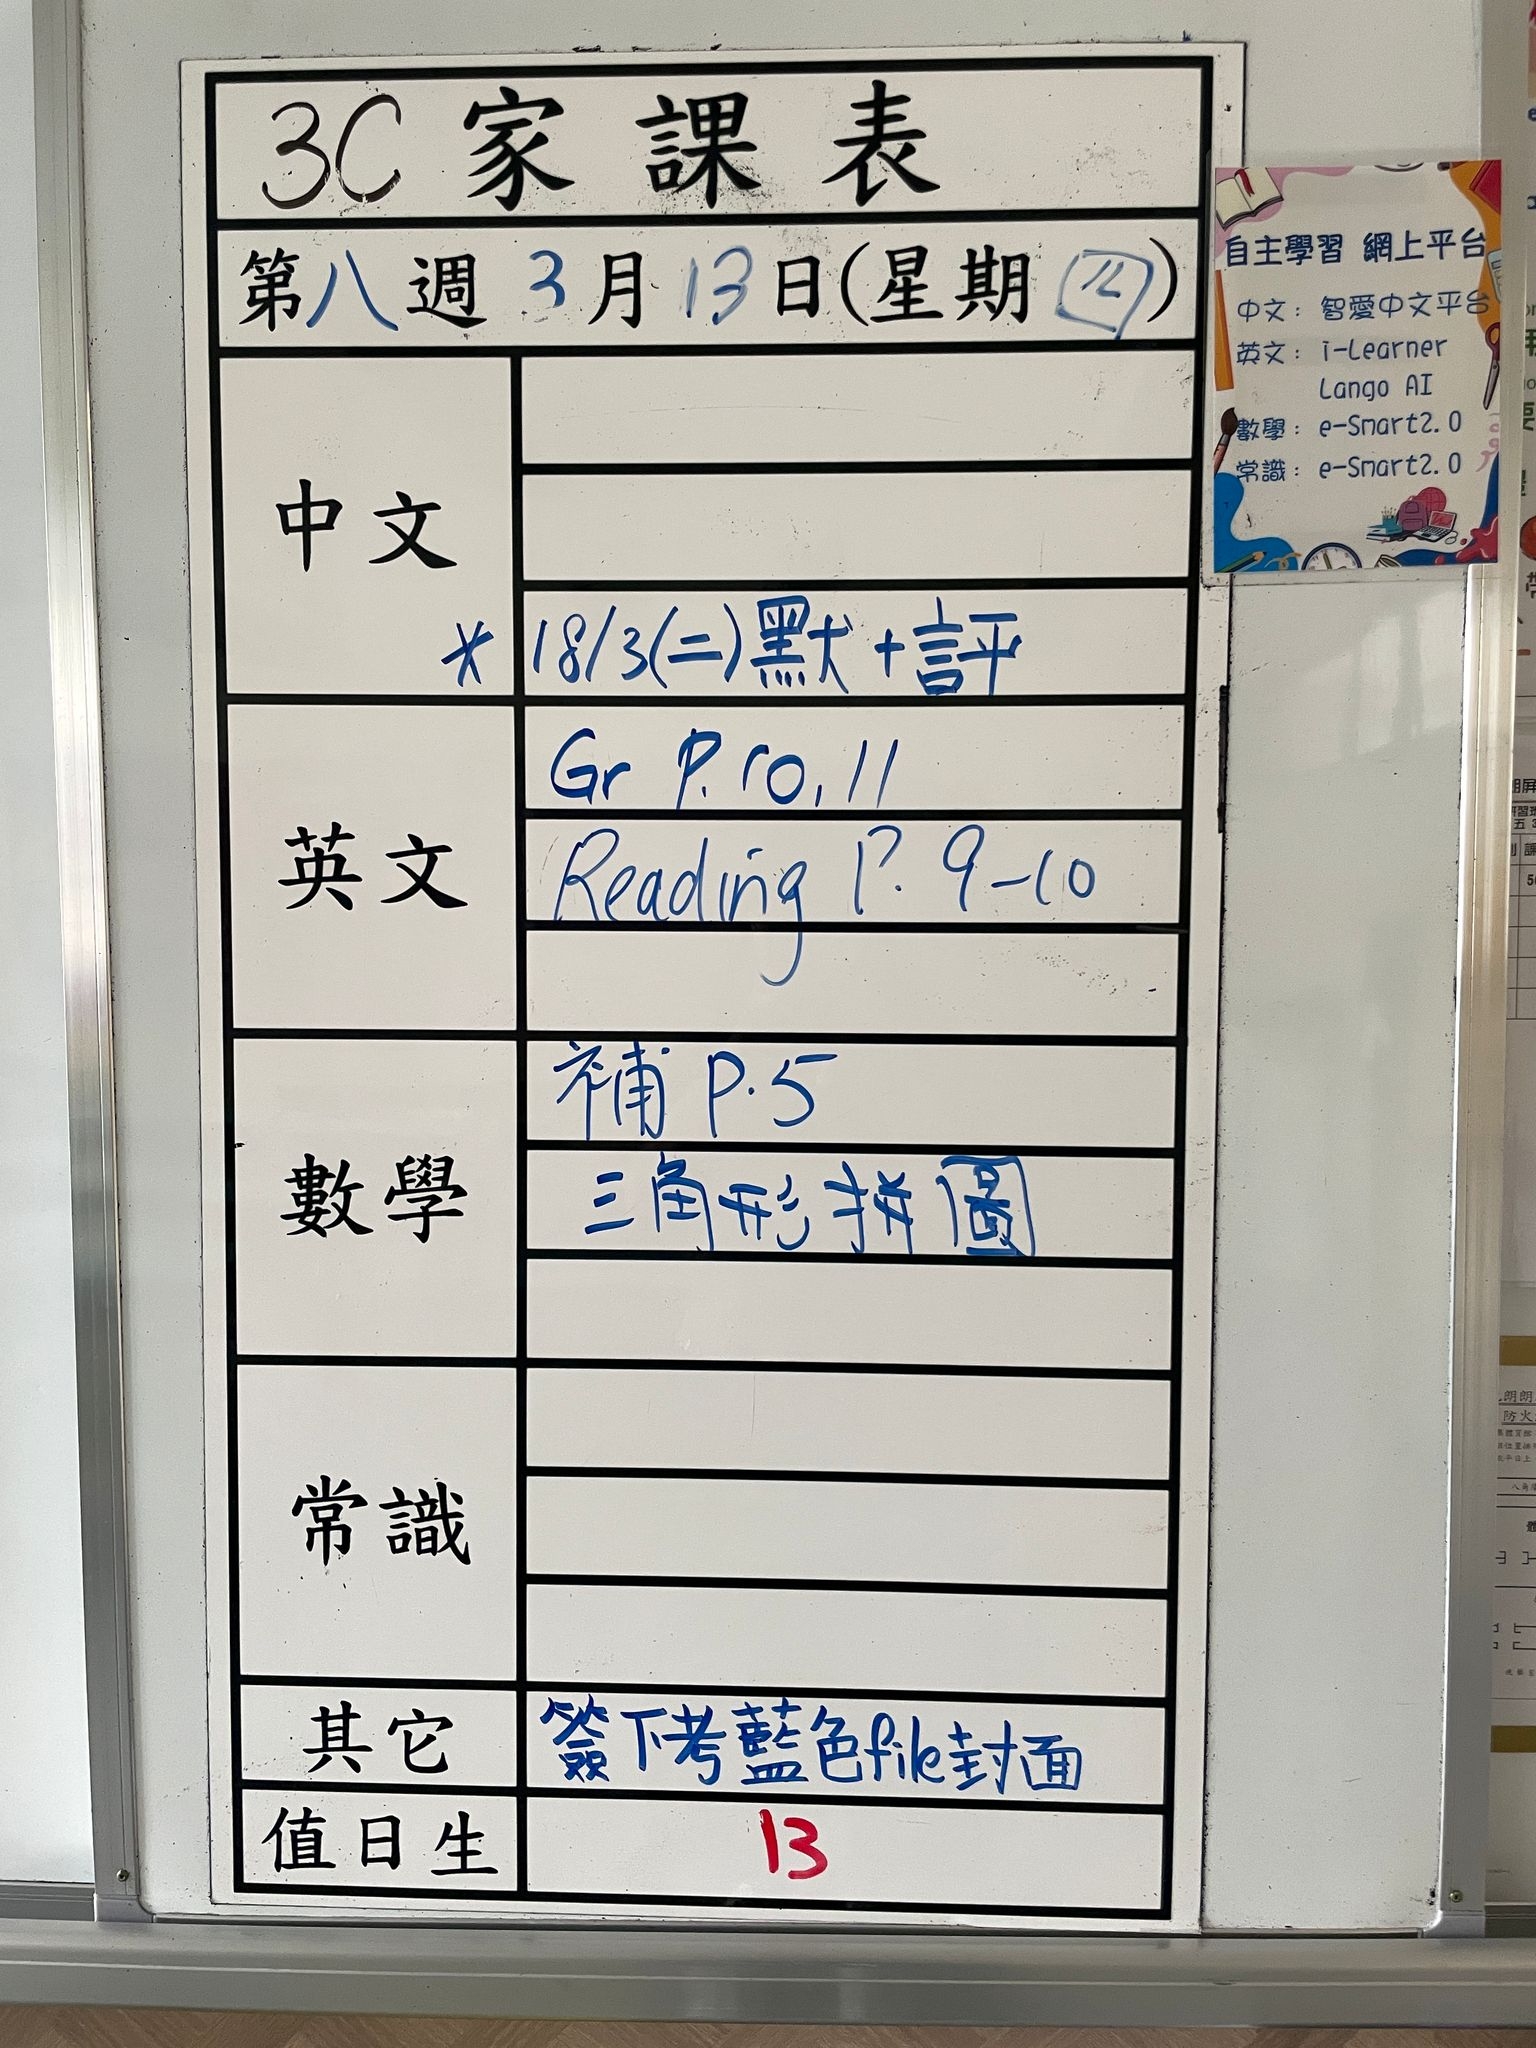 3C 家課表
第八週 3月13日(星期四)
中文
* 18/3(二)默+評
英文
Gr P.10,11
Reading P.9-10
數學
補 P.5
三角形拼圖
常識
其它
簽下考藍色file封面
值日生
13
自主學習 網上平台
中文: 智愛中文平台
英文: i-Learner
Lango AI
數學: e-Smart2.0
常識: e-Smart2.0